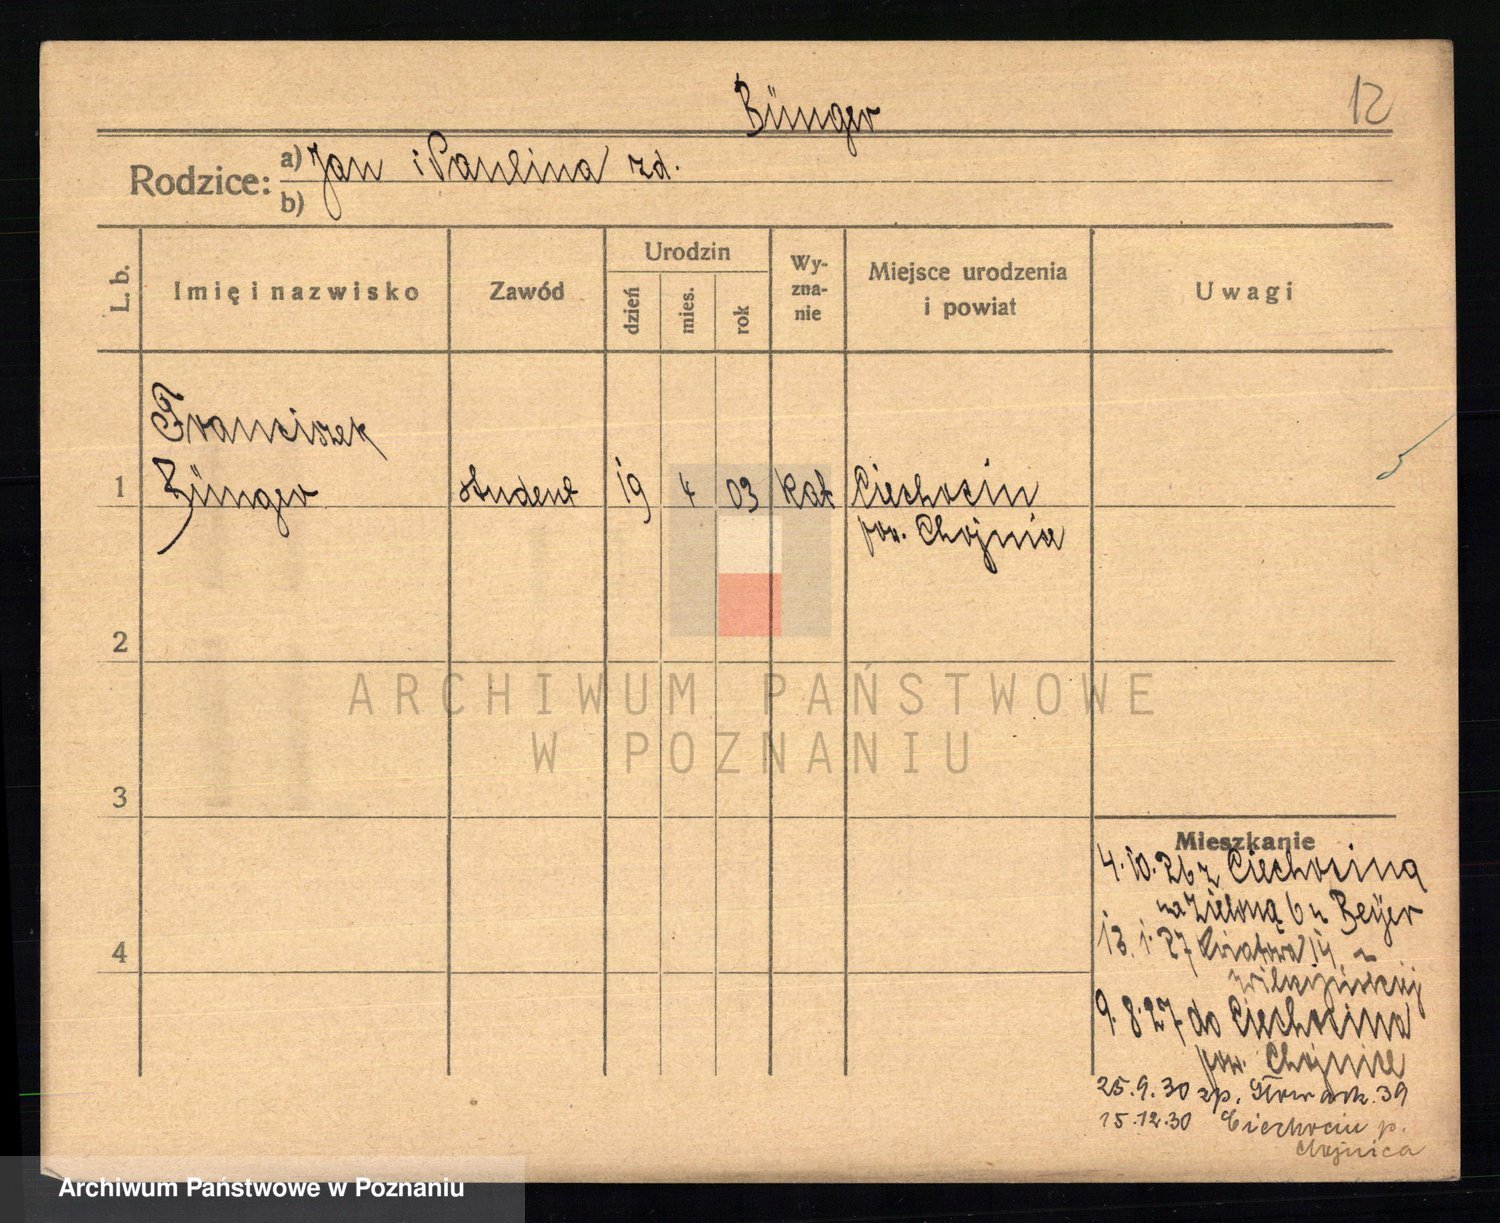 Bünger
12
Rodzice: a) Jan i Paulina zd.
b)
L. b.
Imię i nazwisko
Zawód
Urodzin
dzień
mies.
rok
Wy-
zna-
nie
Miejsce urodzenia
i powiat
Uwagi
Franciszek
1 Bünger student 19 4 03 kat Ciechocin
pow. Chojnice
2
ARCHIWUM PAŃSTWOWE
W POZNANIU
3
4
Mieszkanie
4.10.26 z Ciechocina
na Zieloną 6 u Beyer
13.1.27 Kwiatowa 14 u
9.8.27 do Ciechocina
pow. Chojnice
25.9.30 zp. Słowack. 39
15.12.30 Ciechocin p.
Chojnica
Archiwum Państwowe w Poznaniu